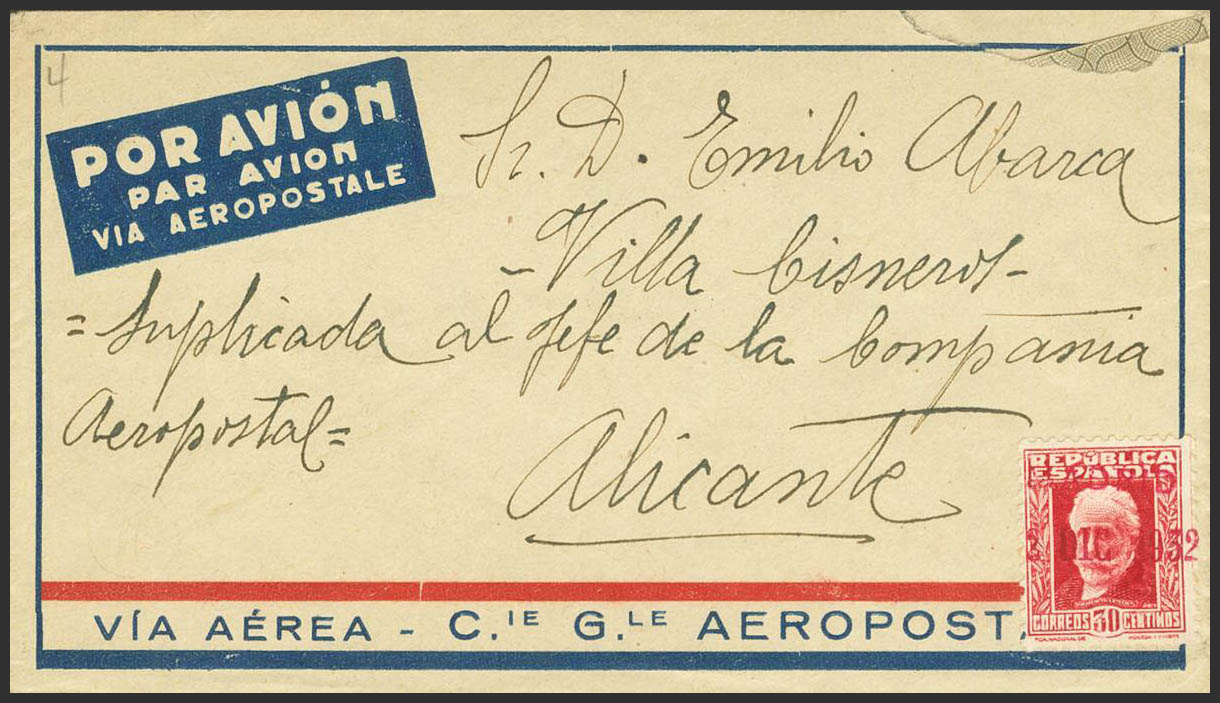 4
POR AVIÓN
PAR AVION
VIA AEROPOSTALE
Sr. D. Emilio Abarca
-Villa Cisneros-
=Suplicada al Jefe de la Compañia
Aeropostal=
Alicante
REPÚBLICA
ESPAÑOLA
DIC 1932
CORREOS 30 CENTIMOS
VÍA AÉREA - C.IE G.LE AEROPOST.